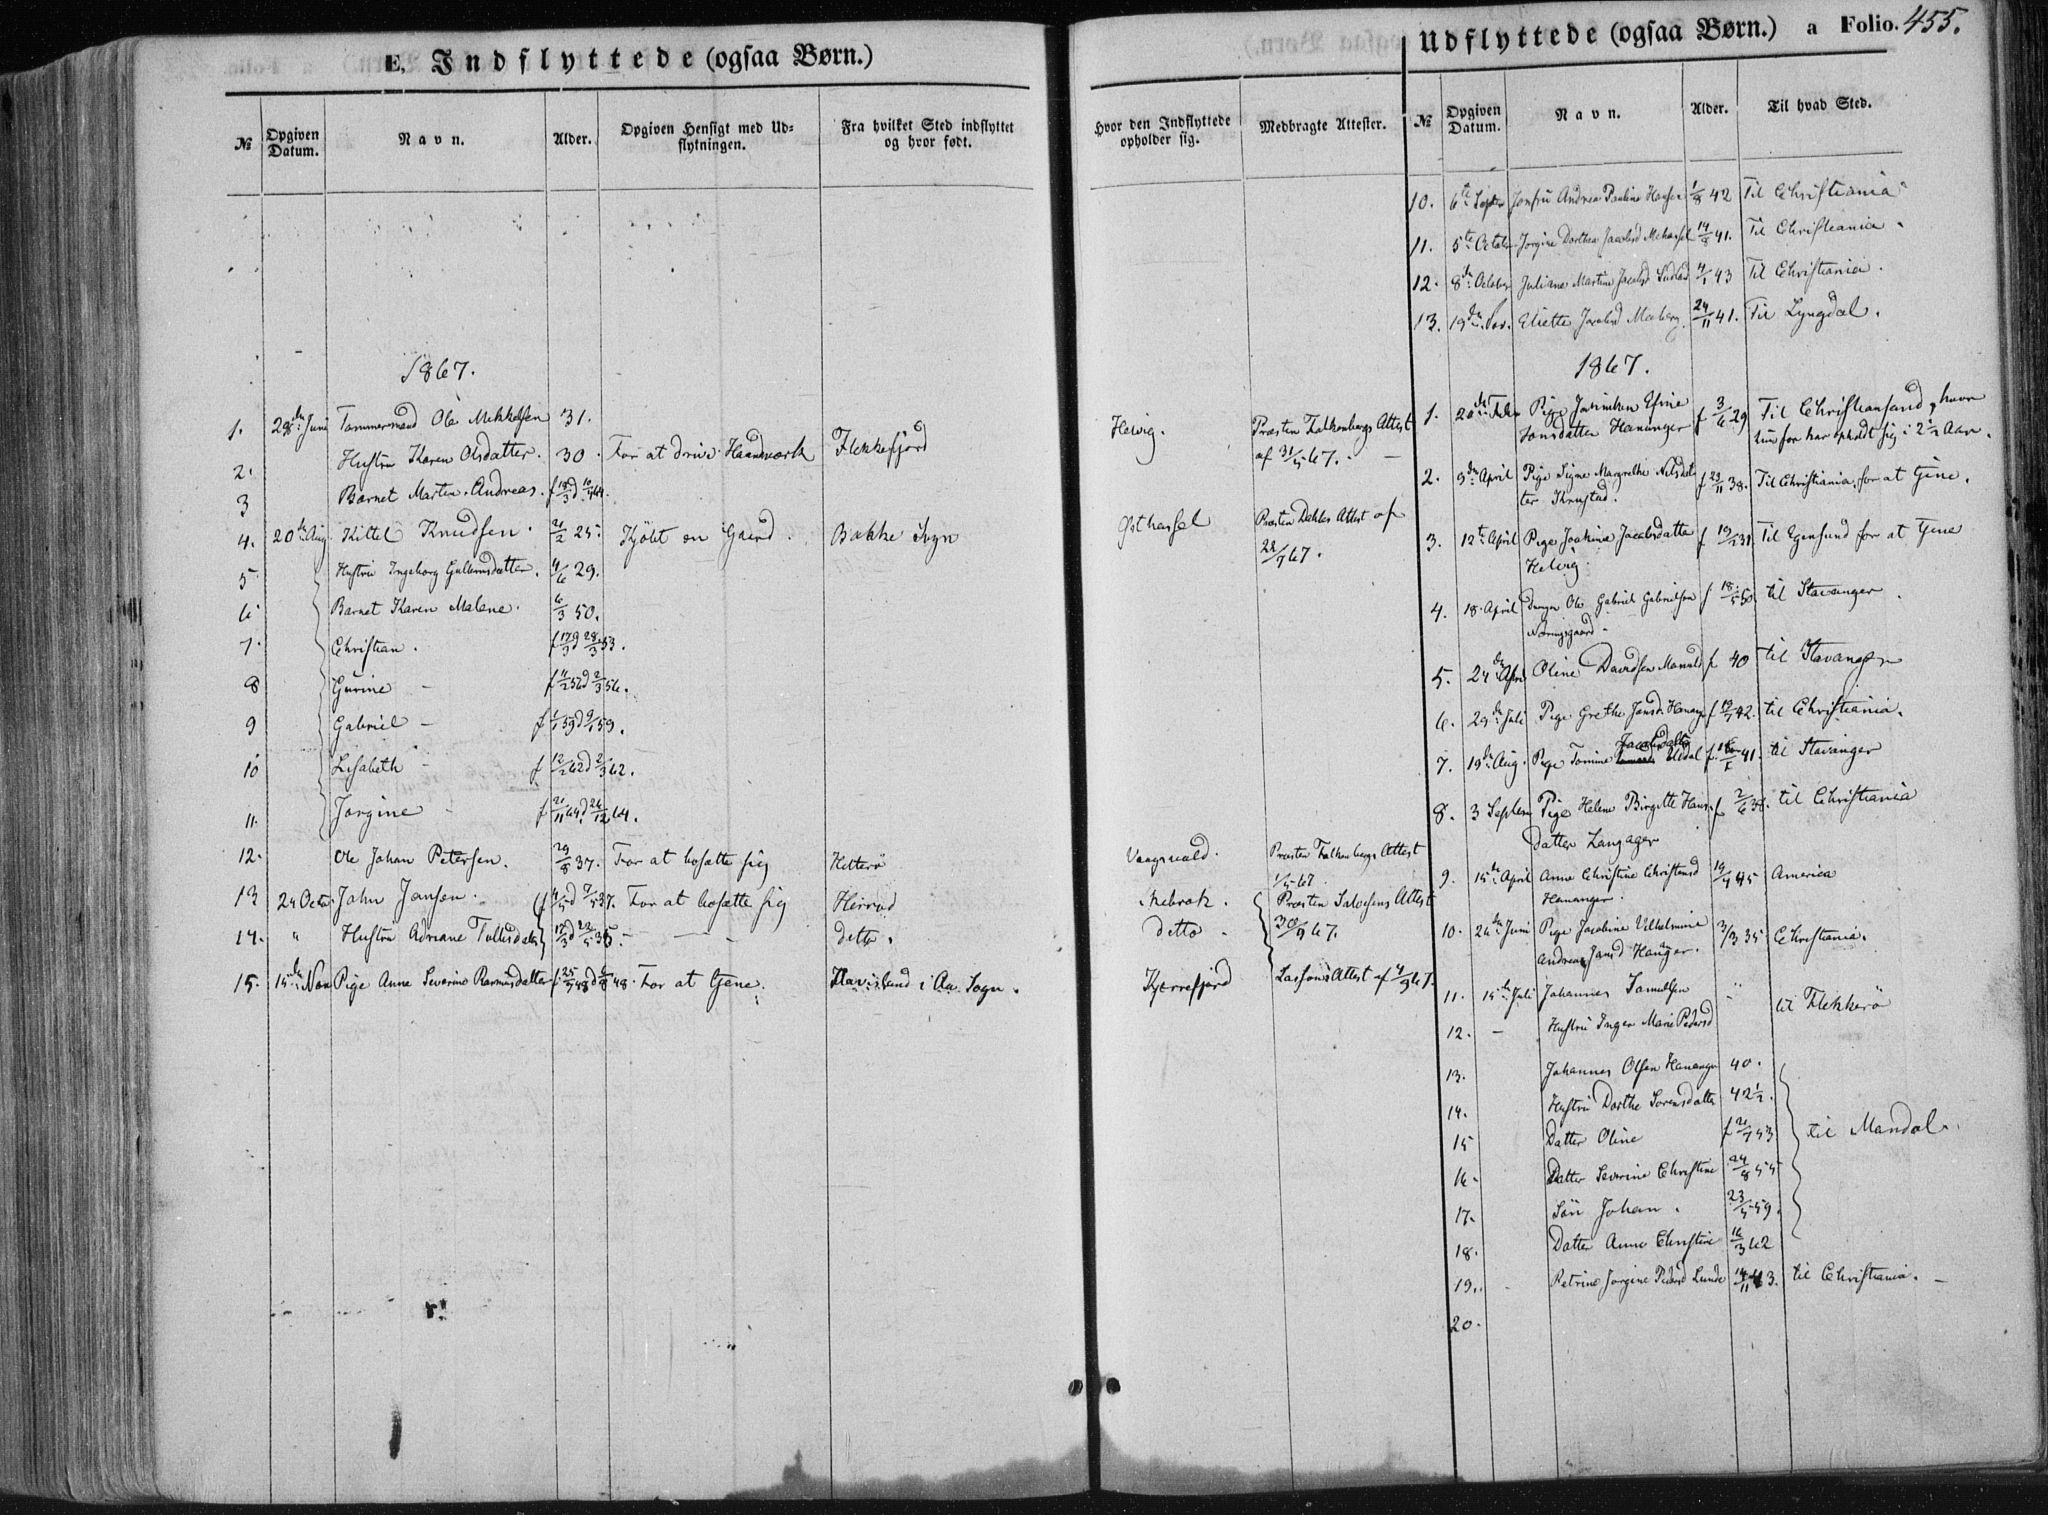 E. Indflyttede (ogsaa Børn.)
№ Opgiven Datum. Navn. Alder. Opgiven Hensigt med Udflytningen. Fra hvilket Sted indflyttet og hvor født. Hvor den Indflyttede opholder sig. Medbragte Attester.
1867.
1. 28de Juni Tømmermand Ole Mekkelsen 31. Helvig. Præsten Falkenbergs Attest
2. Hustru Karen Olsdatter. 30. For at drive Haandværk Flekkefjord af 31/5 67.
3 Barnet Martin Andreas.
4. 20de Aug. Kittel Knudsen. 2/2 25. Kjøbt en Gaard. Bakke Sogn Østhassel Præsten Dahls Attest af
5 Hustru Ingeborg Gullovsdatter. 4/6 29. 22/7 67.
6 Barnet Karen Malene. 6/3 50.
7. Christian. f 17/3 d 28/3 53.
8 Gurine f 11/2 56 d 2/3 56.
9 Gabriel f 1/1 59 d 9/1 59.
10 Lisabeth f 12/2 62 d 2/3 62.
11. Jorgine f 21/11 64 d 26/12 64.
12. Ole Johan Petersen. 29/8 37. For at bosætte sig Hitterø Vaagsvold. Præsten Falkenbergs Attest
1/5 67
13 24 Octo. John Jansen. For at bosætte sig Herrad Præsten Salvesens Attest
14. " Hustru Adriane Tollisdatter ditto. ditto 30/9 67.
15. 15de Nov Pige Anne Severine Rasmusdatter f 25/7 48 For at tjene. i Aa Sogn. Kjørrefjord Lassons Attest af 4/9 67.
Udflyttede (ogsaa Børn.) a Folio. 455.
№ Opgiven Datum. Navn. Alder. Til hvad Sted.
10. 6te Septbr Jomfru Andrea Pauline Hansen 1/8 42 Til Christiania
11. 5te October Jorgine Dorthea Jacobsd Mehassel 14/8 41. Til Christiania.
12. 8de October Juliane Martine Jacobsd 4/1 43 Til Christiania.
13. 19de Nov. Eliette Jacobsd Meberg 24/11 41. Til Lyngdal.
1867.
1. 20de Febr Pige Jonsdatter Hananger f 3/6 29 Til Christiansand, hvor hun før har opholdt sig i 2 1/2 Aar.
2. 9de April Pige Signe Margrethe Nilsdatter f 23/11 38. Til Christiania for at tjene.
3. 12te April Pige Joakine Jacobsdatter Helvig f 19/2 31 Til Egersund for at tjene
4. 18. April Drengen Ole Gabriel Gabrielsen f 18/5 50. til Stavanger
5. 24de April Oline Davidsen f 40 til Stavanger
6. 29de Juli Pige Grethe Jansd. Hanang f 19/7 42. til Christiania.
7. 19de Aug. Pige Tomine Jacobsdatter Ulsdal f. 41. til Stavanger
8. 3 Septem Pige Helene Birgitte Hansdatter Langager f 2/6 38. til Christiania
9. 15de April Anne Christine Christensd Hananger. 19/4 45 America
10. 24de Juni Pige Jacobine Vilhelmine Andrea Jansd 3/3 35 Christiania.
11. 15de Juli Johannes Samuelsen " til Flekkerø
12. – Hustru Inger Marie Pedersd
13. Johannes Olsen Hananger 40.
14. Hustru Dorthe Sorensdatter 42 1/2.
15 Datter Oline f 21/7 53 til Mandal.
16. Datter Severine Christine 24/8 55
17. Søn Johan. 23/5 59.
18. Datter Anne Christine 16/3 62
19. Petrine Jorgine Pedersd Lunde 14/11 43. til Christiania.
20.